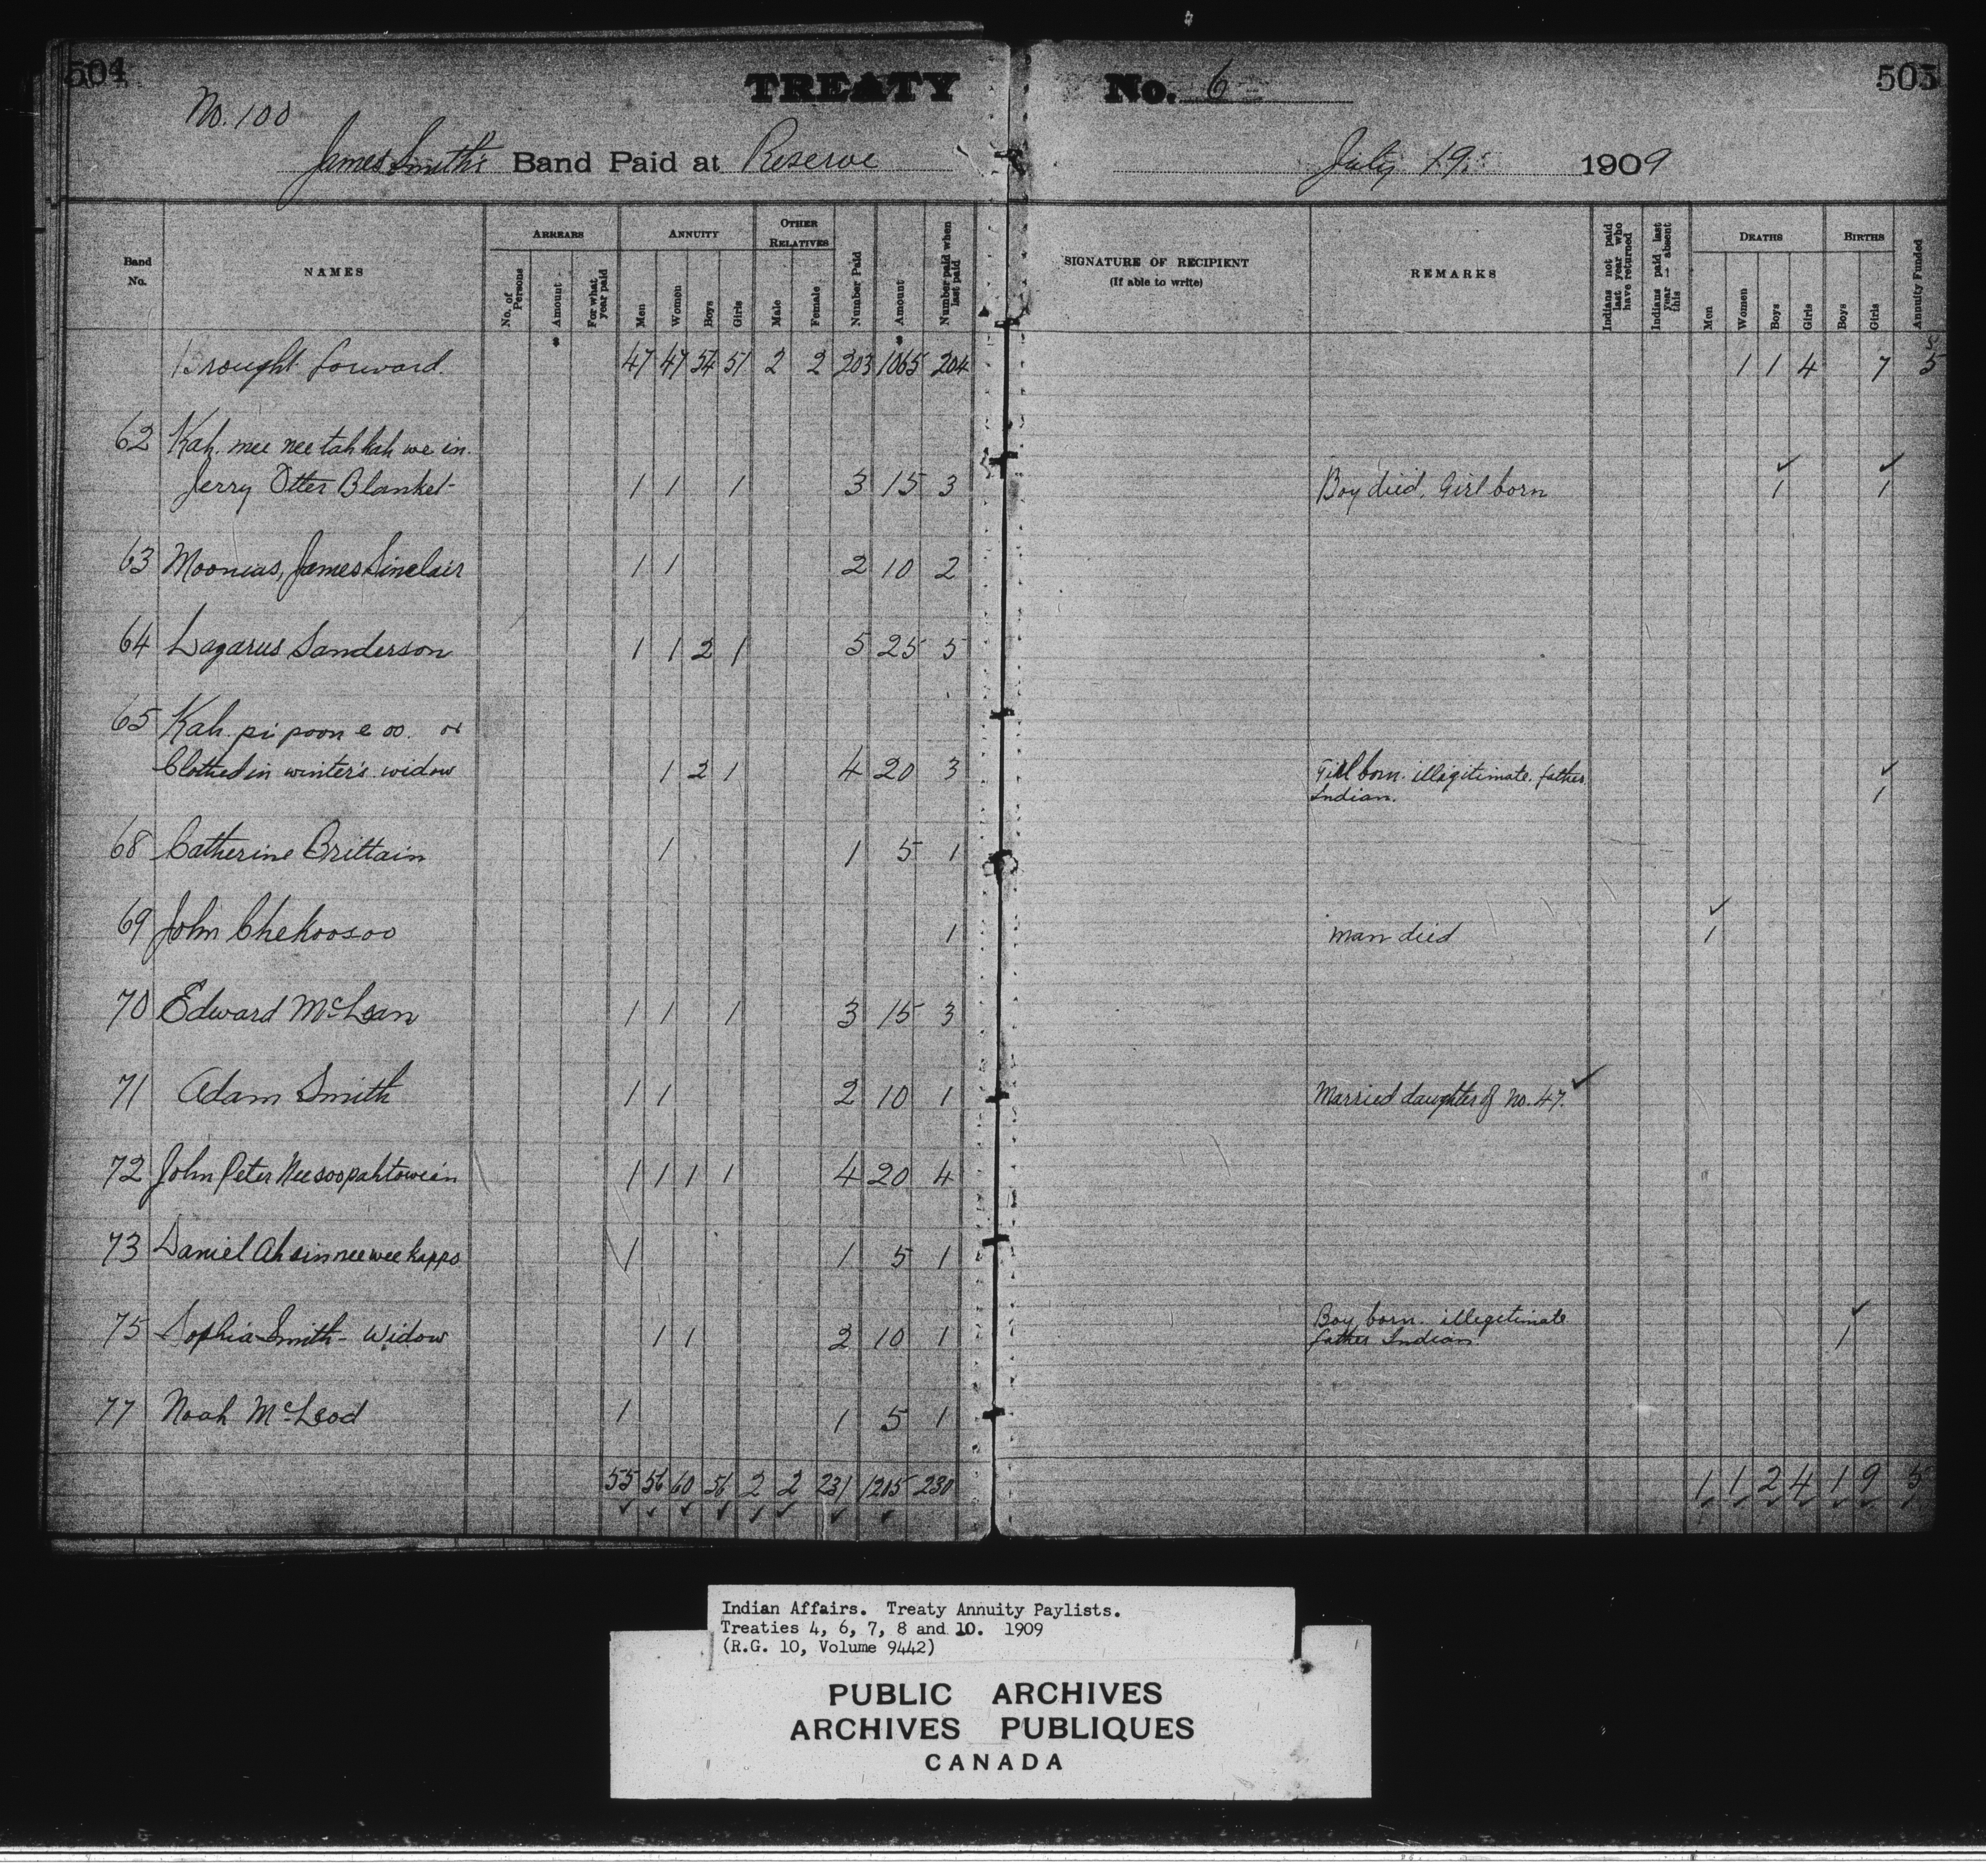 504 TREATY No. 6 505
No. 100
James Smith's Band Paid at Reserve July 19. 1909
Band No. NAMES ARREARS No. of Persons Amount $ For what year paid ANNUITY Men Women Boys Girls OTHER RELATIVES Male Female Number Paid Amount $ Number paid when last paid SIGNATURE OF RECIPIENT (If able to write) REMARKS Indians not paid last year who have returned Indians paid last year -- absent this DEATHS Men Women Boys Girls BIRTHS Boys Girls Annuity Funded
Brought forward. 47 47 54 51 2 2 203 1065 204 1 1 4 7 5
62 Kah. mee nee tah kah we in.
Jerry Otter Blanket- 1 1 1 3 15 3 Boy died. Girl born 1 1
63 Moonias, James Sinclair 1 1 2 10 2
64 Lazarus Sanderson 1 1 2 1 5 25 5
65 Kah. pi poon e oo. or
Clothed in winter's widow 1 2 1 4 20 3 Girl born. illigitimate. father
Indian. 1
68 Catherine Brittain 1 1 5 1
69 John Chekoosoo 1 Man died 1
70 Edward McLean 1 1 1 3 15 3
71 Adam Smith 1 1 2 10 1 Married daughter of No. 47.
72 John Peter Neesoopahtowein 1 1 1 1 4 20 4
73 Daniel Ahsinneeweekappo 1 1 5 1
75 Sophia Smith - Widow 1 1 2 10 1 Boy born. illegitimate
father Indian. 1
77 Noah McLeod 1 1 5 1
55 56 60 56 2 2 231 1205 230 1 1 2 4 1 9 5
Indian Affairs. Treaty Annuity Paylists.
Treaties 4, 6, 7, 8 and 10. 1909
(R.G. 10, Volume 9442)
PUBLIC ARCHIVES
ARCHIVES PUBLIQUES
CANADA